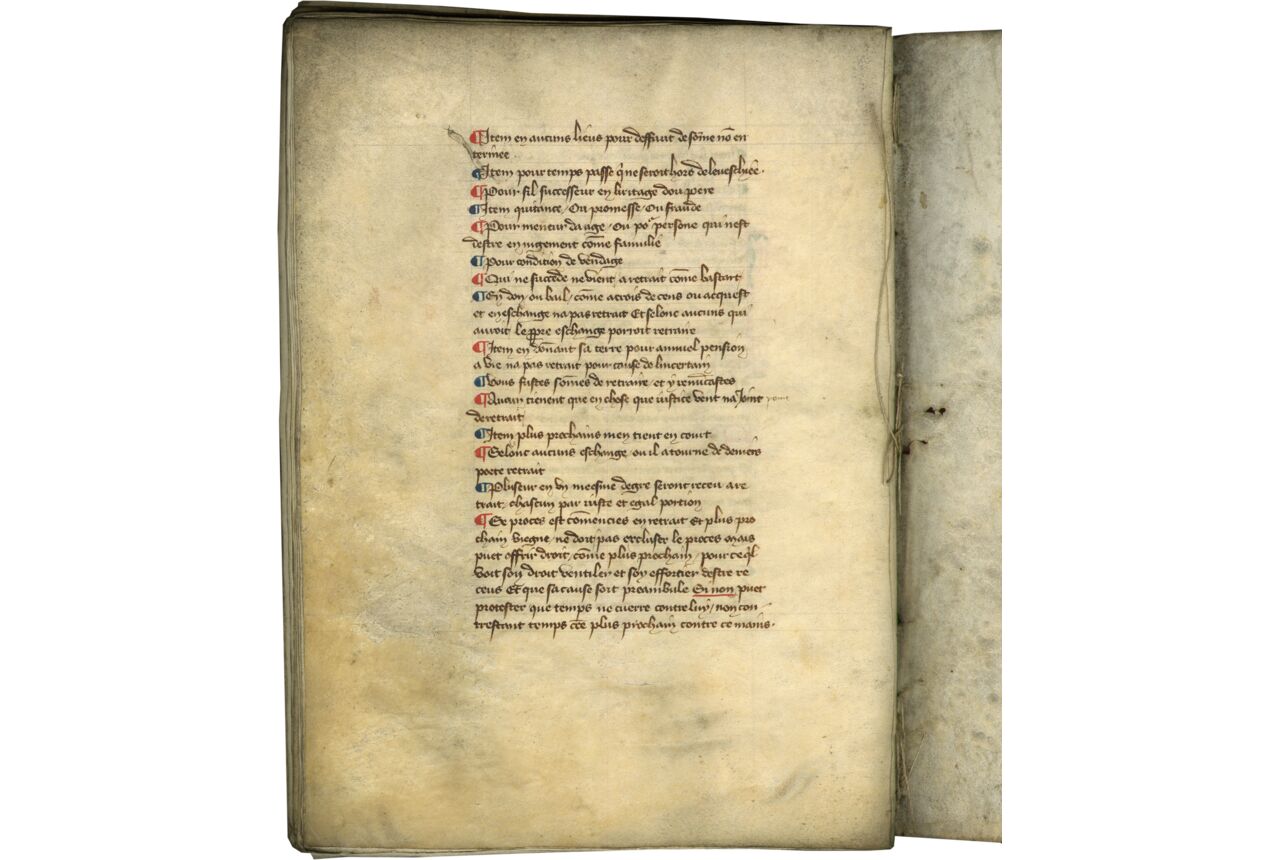 ¶ Item en aucuns lieus pour deffaut de somē nō en
terinee .
¶ Item pour temps passe q̄ ne seroit hors de leveschiee .
¶ Pour fil successeur en hiritage dou pere
¶ Item quitance / Ou promesse / Ou fraude
¶ Pour meneur daage / Ou po persone qui nest
destre en iugement cōme familie
¶ Pour condition de vendage
¶ Qui ne succede ne vient a retrait cōme bastart
¶ En don / ou bail / cōme acrois de cens ou acquest
et en eschange na pas retrait Et selonc aucuns qui
auroit le ꝓpre eschange porroit retraire
¶ Item en dōnant sa terre pour annuel pension
a vie na pas retrait pour cause de lincertain
¶ Vous fustes sōmes de retraire / et y renūciastes
¶ Aucun tienent que en chose que iustice vent na Joint
de retrait
¶ Item plus prochains men tient en court
¶ Selonc aucuns eschange / ou il a tourne de deniers
poete retrait
¶ Pluseur en vn meesme degre seront receu a re
trait / chascun par iuste et egal portion
¶ Se proces est cōmencies en retrait Et plus pro
chain viegne / ne doit pas excluser le proces Mais
puet offrir droit / cōme plus prochain / pour ce ql̄
voit son droit ventiler et soy effortier destre re
ceus Et que sa cause soit preambule Si non puet
protester que temps ne cuerre contre luy / non con
trestant temps cōe plus prochain contre ce mains .